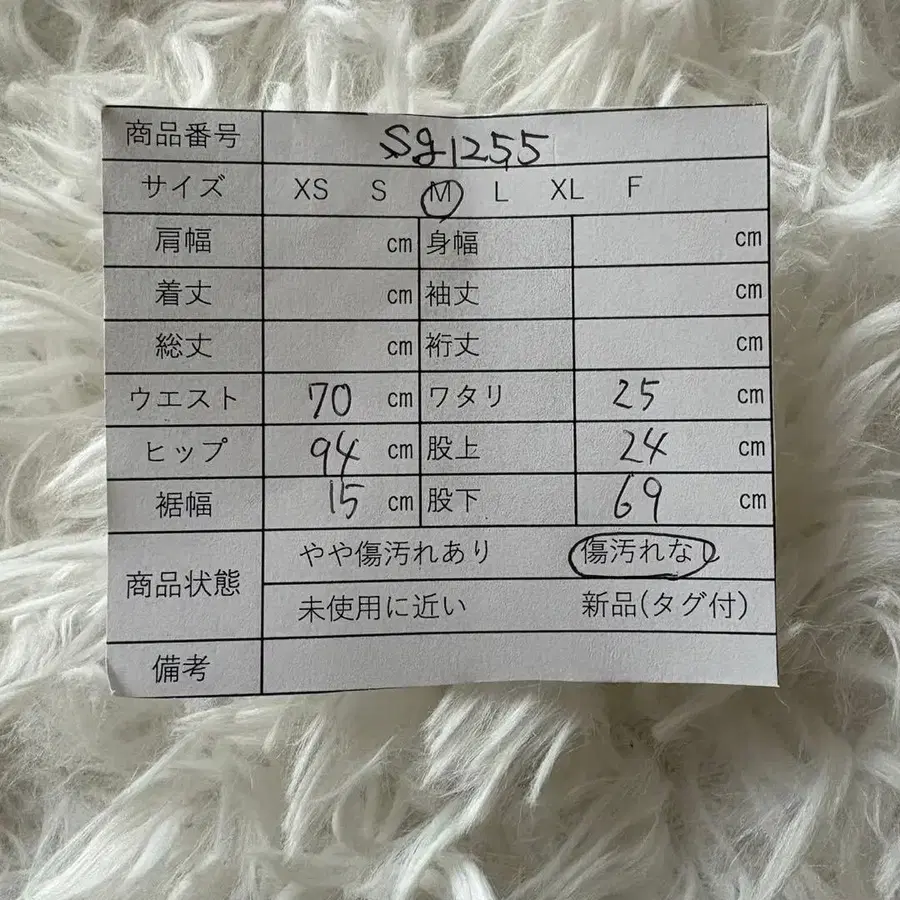 商品番号 Sg1255
サイズ XS S M L XL F
肩幅 cm 身幅 cm
着丈 cm 袖丈 cm
総丈 cm 裄丈 cm
ウエスト 70 cm ワタリ 25 cm
ヒップ 94 cm 股上 24 cm
裾幅 15 cm 股下 69 cm
商品状態 やや傷汚れあり 傷汚れなし
未使用に近い 新品(タグ付)
備考